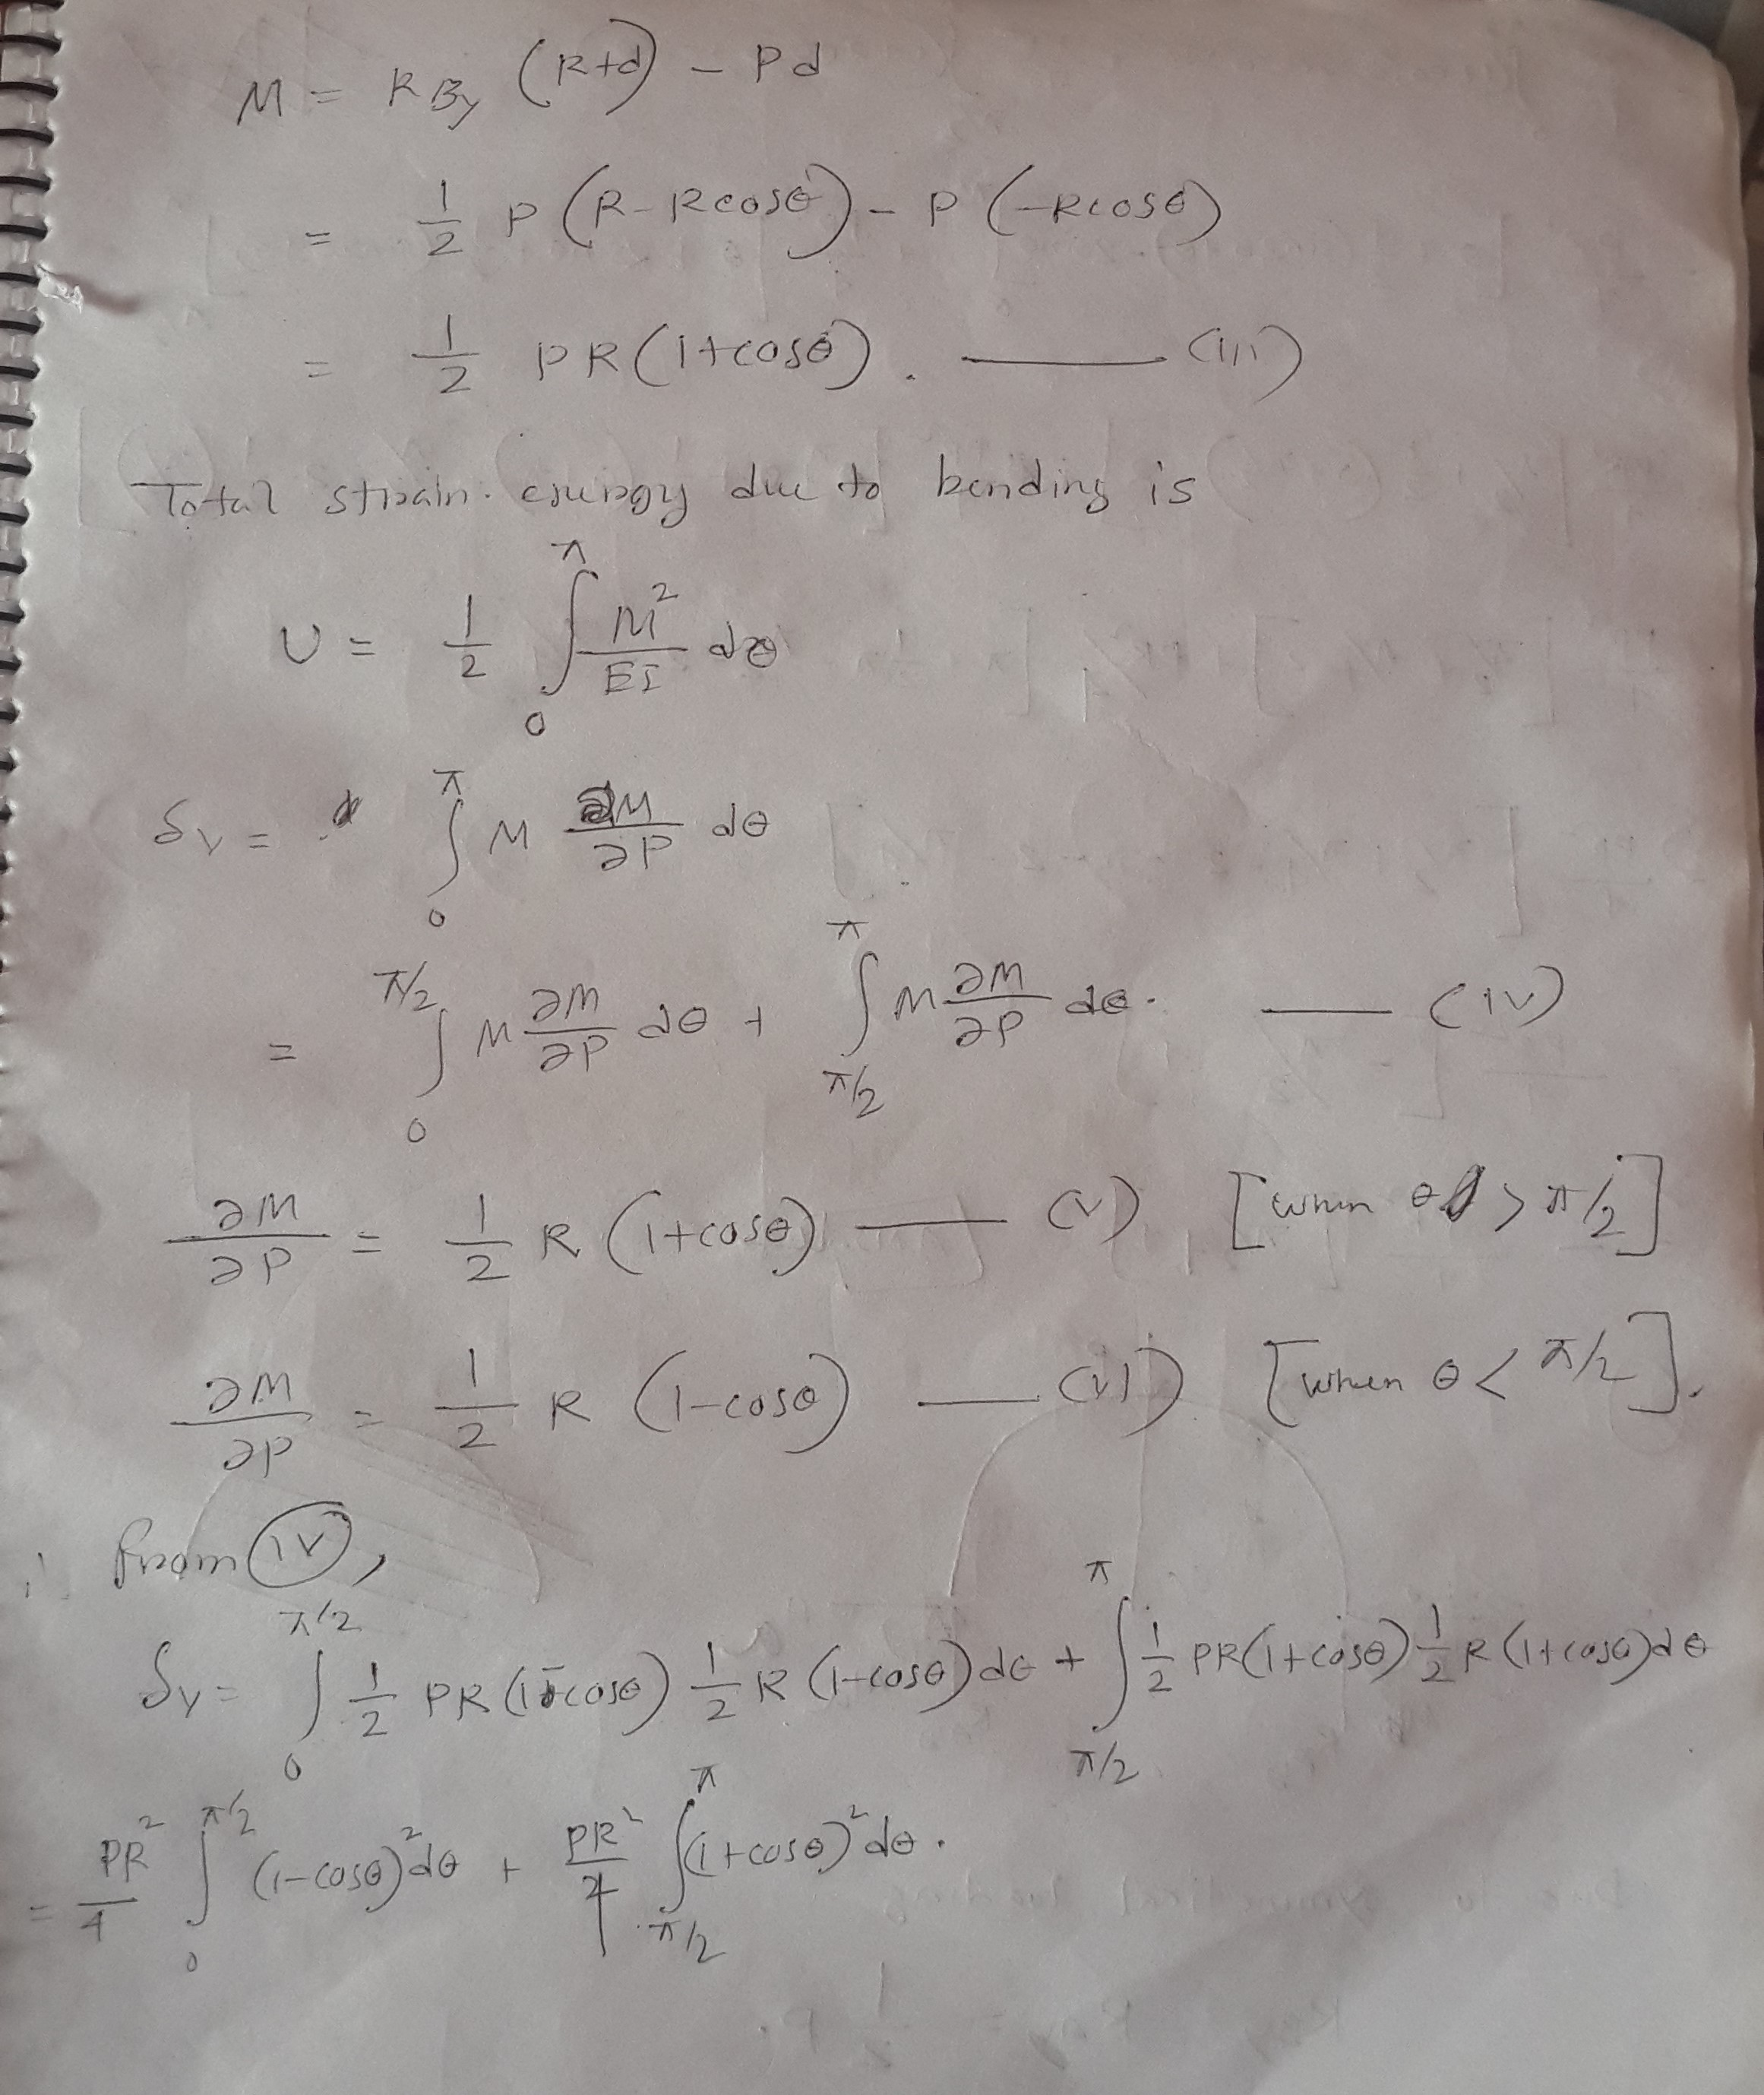 M = R_By (R+d) - Pd
= 1/2 P (R-Rcosθ) - P (-Rcosθ)
= 1/2 PR(1+cosθ). —— (iii)
Total strain energy due to bending is
U = 1/2 ∫_0^π M²/EI dθ
δ_v = ∫_0^π M ∂M/∂P dθ
= ∫_0^{π/2} M ∂M/∂P dθ + ∫_{π/2}^π M ∂M/∂P dθ. —— (iv)
∂M/∂P = 1/2 R (1+cosθ) —— (v) [when θ > π/2]
∂M/∂P = 1/2 R (1-cosθ) —— (vi) [when θ < π/2].
∴ from (iv),
δ_v = ∫_0^{π/2} 1/2 PR (1-cosθ) 1/2 R (1-cosθ) dθ + ∫_{π/2}^π 1/2 PR(1+cosθ) 1/2 R (1+cosθ) dθ
= PR²/4 ∫_0^{π/2} (1-cosθ)² dθ + PR²/4 ∫_{π/2}^π (1+cosθ)² dθ.